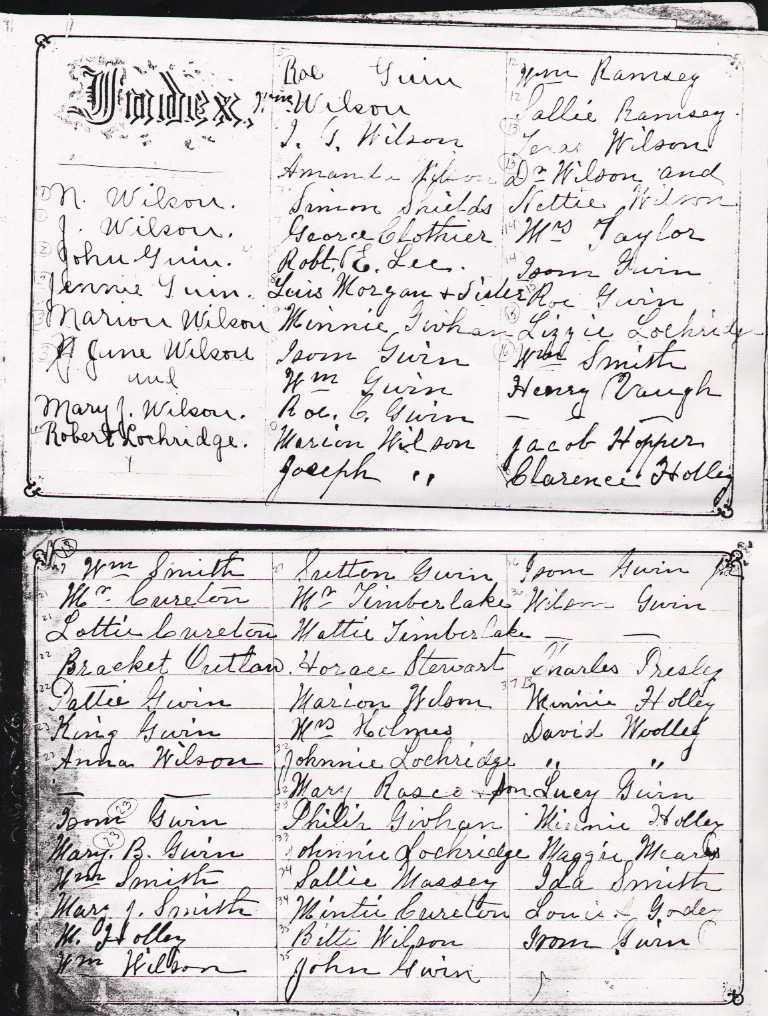 Index.
N. Wilson.
J. Wilson.
John Guin.
Jennie Guin.
Marion Wilson
June Wilson
and
Mary J. Wilson.
Robert Lochridge.
Roe Guin
Wm Wilson
Wilson
Amanda
Simon Shields
George Clothier
Robt. E. Lee.
Louis Morgan & Sister
Minnie Givhan
Isom Gwin
Wm Gwin
Roe. C. Gwin
Marion Wilson
Joseph "
12 Wm Ramsey
12 Sallie Ramsey.
13 Wilson
13 Dr Wilson and
Nettie Wilson
14 Mrs Taylor
14 Isom Gwin
15 Roe Gwin
Lizzie Lochridge
16 Wm Smith
Henry Vaugh
— —
Jacob Hopper
Clarence Holley
18
Wm Smith
21 Mr. Cureton
21 Lottie Cureton
22 Bracket Outlaw.
22 Pattie Gwin
23 King Gwin
23 Anna Wilson
— —
Isom Gwin 23
Mary. B. Gwin 23
Wm Smith
Mary J. Smith
M. Holley
Wm Wilson
27 Sutton Gwin
Mr Timberlake
Mattie Timberlake
Horace Stewart
Marion Wilson
Mrs Holmes
32 Johnnie Lochridge
32 Mary Rasco & Son
33 Philip Givhan
33 Johnnie Lochridge
34 Sallie Massey
34 Mintie Cureton
35 Bitti Wilson
35 John Gwin
36 Isom Gwin Jr
36 Wilson Gwin
— —
Charles Presley
37 Minnie Holley
David Woolley
" "
Lucy Gwin
Minnie Holley
Maggie Mears
Ida Smith
Isom Gwin